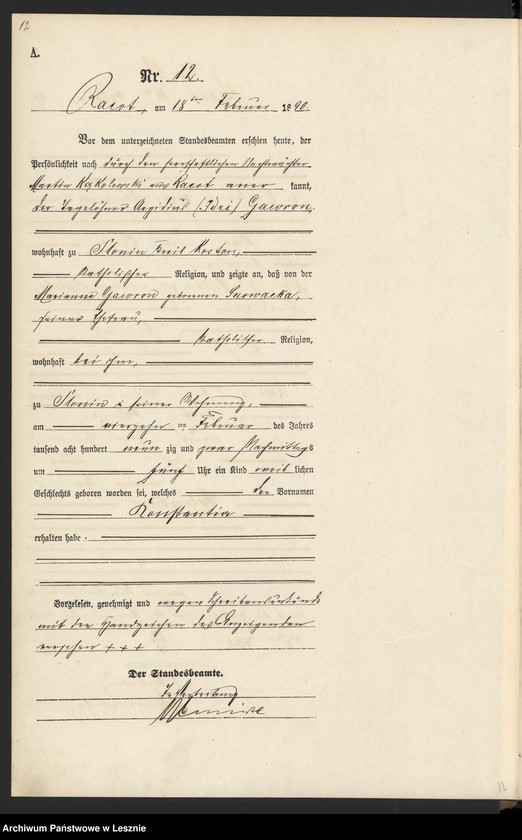 12
A.
Nr. 12.
Racot, am 18ten Februar 1890.
Vor dem unterzeichneten Standesbeamten erschien heute, der
Persönlichkeit nach durch den herrschaftlichen Nachtwächter
Martin Kąkolewski aus Racot aner kannt,
der Tagelöhner Aegidius (Idzi) Gawron,
wohnhaft zu Slonin Kreis Kosten,
katholischer Religion, und zeigte an, daß von der
Marianna Gawron geborenen Snowacka,
seiner Ehefrau,
katholischer Religion,
wohnhaft bei ihm,
zu Slonin in seiner Wohnung,
am vierzehn ten Februar des Jahres
tausend acht hundert neun zig und zwar Nachmittags
um fünf Uhr ein Kind weib lichen
Geschlechts geboren worden sei, welches den Vornamen
Konstantia
erhalten habe.
Vorgelesen, genehmigt und wegen Schreibensunkunde
mit den Handzeichen des Anzeigenden
versehen + + +
Der Standesbeamte.
In Vertretung
Archiwum Państwowe w Lesznie